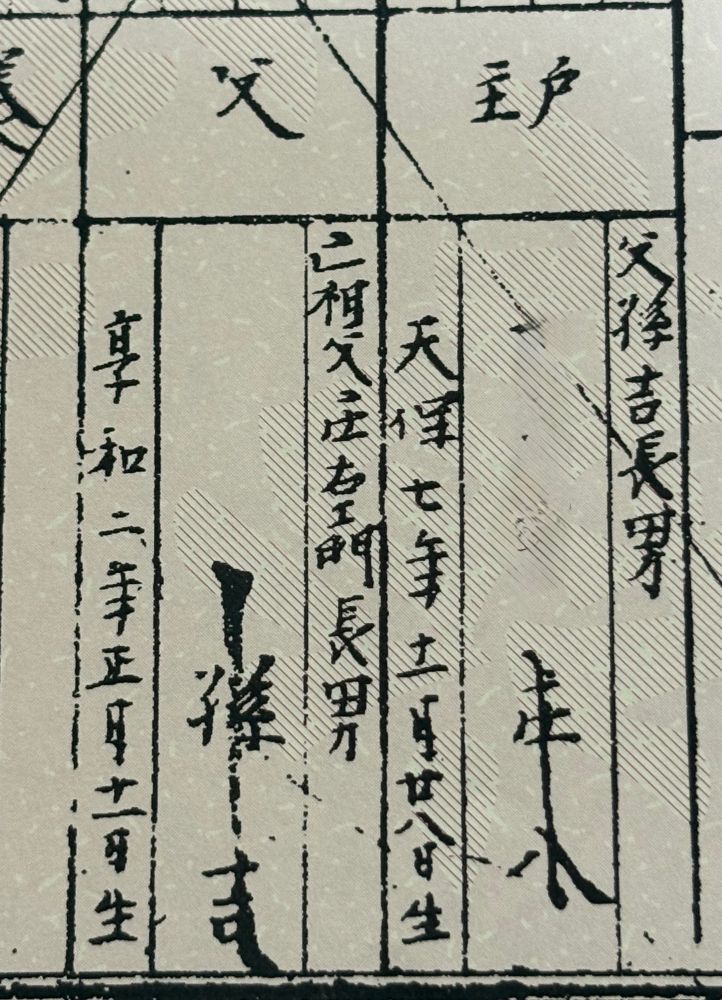 戸主
父孫吉長男
天保七年十一月廿八日生
父
亡祖父庄左衛門長男
孫吉
享和二年正月十一日生